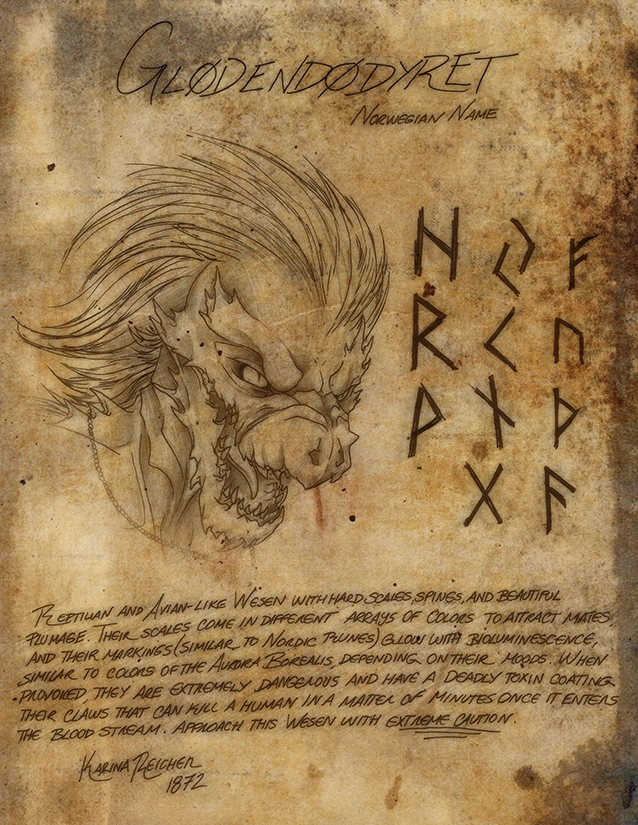 GLØDENDØDYRET
NORWEGIAN NAME
ᚺ ᛃ ᚨ
ᚱ ᚲ ᚢ
ᚹ ᚾ ᚦ
ᚷ ᚨ
REPTILIAN AND AVIAN-LIKE WESEN WITH HARD SCALES, SPINES, AND BEAUTIFUL
PLUMAGE. THEIR SCALES COME IN DIFFERENT ARRAYS OF COLORS TO ATTRACT MATES,
AND THEIR MARKINGS (SIMILAR TO NORDIC RUNES) GLOW WITH BIOLUMINESCENCE,
SIMILAR TO COLORS OF THE AURORA BOREALIS, DEPENDING ON THEIR MOODS. WHEN
PROVOKED THEY ARE EXTREMELY DANGEROUS AND HAVE A DEADLY TOXIN COATING
THEIR CLAWS THAT CAN KILL A HUMAN IN A MATTER OF MINUTES ONCE IT ENTERS
THE BLOOD STREAM. APPROACH THIS WESEN WITH EXTREME CAUTION.
KARINA REICHER
1872